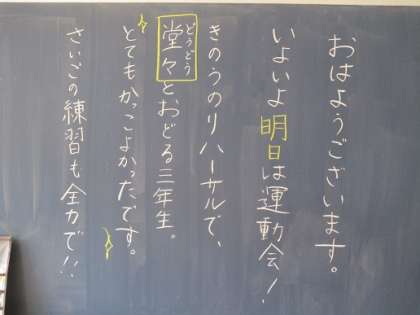 おはようございます。
いよいよ明日は運動会！
きのうのリハーサルで、
堂々とおどる三年生。
どうどう
とてもかっこよかったです。
さいごの練習も全力で!!